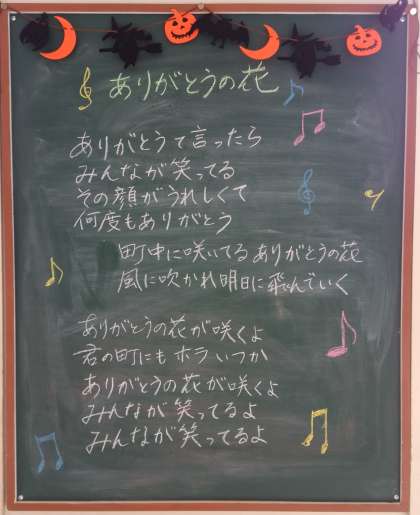 ありがとうの花
ありがとうて言ったら
みんなが笑ってる
その顔がうれしくて
何度もありがとう
町中に咲いてる ありがとうの花
風に吹かれ明日に飛んでいく
ありがとうの花が咲くよ
君の町にも ホラ いつか
ありがとうの花が咲くよ
みんなが笑ってるよ
みんなが笑ってるよ